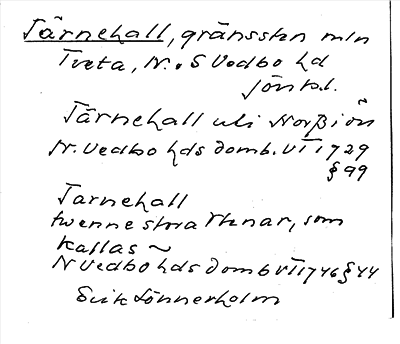 Tärnehall, gränssten mln
Tveta, N. o S Vedbo hd
Jönk.l.
Tärnehall uti Norßiön
N. Vedbo hds domb. VII 1729
§ 99
Tarnehall
twenne stora stenar, som
kallas ~
N Vedbo hds domb VII 1746 § 44
Erik Lönnerholm